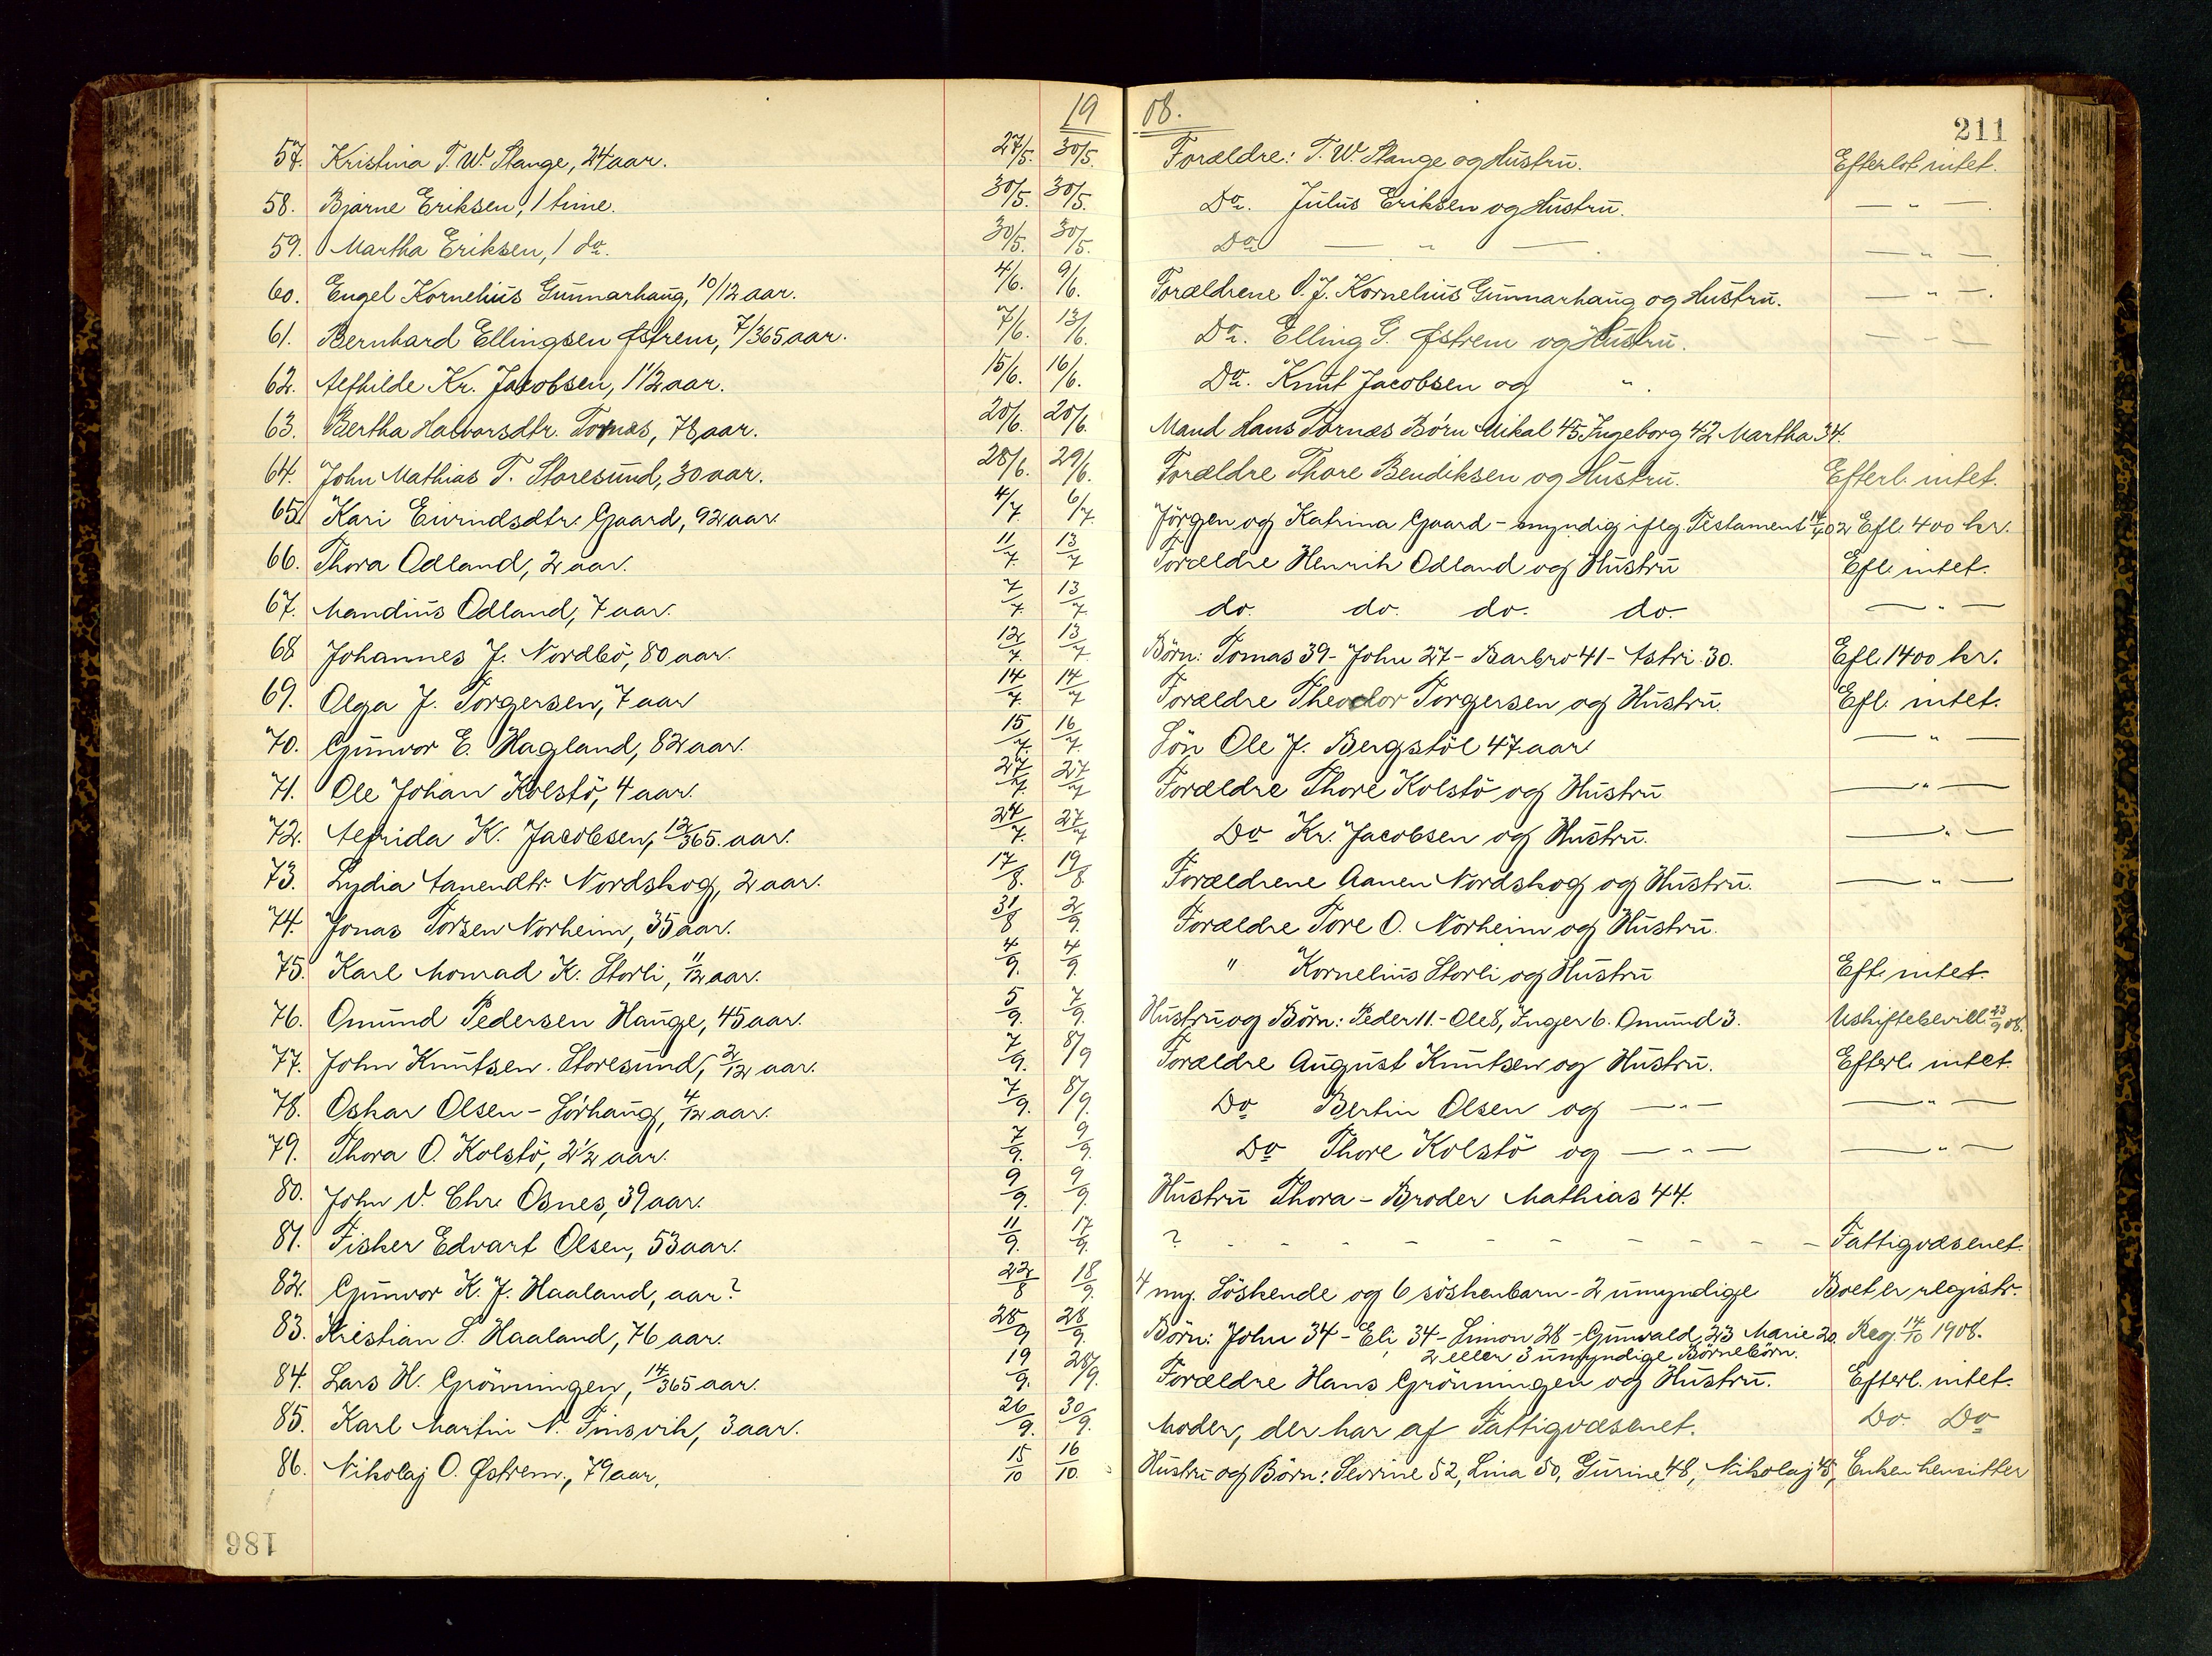 19 08. 211
57. Kristina T. W. Stange, 24 aar. 27/5. 30/5. Forældre: T. W. Stange og Hustru. Efterlot intet.
58. Bjarne Eriksen, 1 time. 30/5. 30/5. Do. Julus Eriksen og Hustru. — " —.
59. Martha Eriksen, 1 do. 30/5. 30/5. Do — " — . — " —.
60. Engel Kornelius Gunnarhaug, 10/12 aar. 4/6. 9/6. Forældrene O. J. Kornelius Gunnarhaug og Hustru. — " —.
61. Bernhard Ellingsen Østrem, 7/365 aar. 7/6. 13/6. Do. Elling G. Østrem og Hustru. — " —
62. Alfhilde Kr. Jacobsen, 1 1/2 aar. 15/6. 16/6. Do. Knut Jacobsen og " .
63. Bertha Halvorsdtr. Tornæs, 78 aar. 20/6. 20/6. Mand Hans Tornæs Børn Mikal 45 Ingeborg 42 Martha 34.
64. John Mathias T. Storesund, 30 aar. 28/6. 29/6. Forældre Thore Bendiksen og Hustru. Efterl. intet.
65. Kari Eivindsdtr. Gaard, 92 aar. 4/7. 6/7. Jörgen og Katrina Gaard - myndig iflg. Testament 14/7 02 Efl. 400 kr.
66. Thora Odland, 2 aar. 11/7. 13/7 Forældre Henrik Odland og Hustru Efl. intet.
67. Mandius Odland, 7 aar. 7/7. 13/7. do. do. do. do. — " —
68 Johannes J. Nordbö, 80 aar. 12/7. 13/7. Börn: Tomas 39 - John 27 - Barbro 41 - Astri 30. Efl. 1400 kr.
69. Olga J. Torgersen, 7 aar 14/7. 14/7 Forældre Theodor Torgersen og Hustru. Efl. intet.
70. Gunvor E. Hagland, 82 aar. 15/7. 16/7. Sön Ole J. Bergstöl 47 aar. — " —
71. Ole Johan Kolstö, 4 aar. 27/7. 27/7 Forældre Thore Kolstö og Hustru — " —
72. Alfrida K. Jacobsen, 12/365. aar. 24/7. 27/7 Do Kr. Jacobsen og Hustru. — " —
73. Lydia Aanendtr. Nordskog, 2 aar. 17/8. 19/8. Forældrene Aanen Nordskog og Hustru. — " —
74. Jonas Torsen Norheim, 35 aar. 31/8 2/9. Forældre Tore O. Norheim og Hustru.
75. Karl Monrad K. Storli, 11/12 aar. 4/9. 4/9. " Kornelius Storli og Hustru Eft. intet.
76. Omund Pedersen Hauge, 45 aar. 5/9. 7/9. Hustru og Börn: Peder 11. - Ole 8, Inger 6. Omund 3. Uskiftebevill. 23/9 08.
77. John Knutsen. Storesund, 2/12 aar. 7/9. 8/9 Forældre August Knutsen og Hustru. Efterl. intet.
78. Oskar Olsen - Sörhaug, 4/12 aar. 7/9. 8/9. Do Bertin Olsen og — " — — " —
79. Thora O. Kolstö, 2 1/2 aar. 7/9. 9/9. Do Thore Kolstö og — " — — " —
80. John V. Chr. Osnes, 39 aar. 9/9. 9/9. Hustru Thora - Broder Mathias 44.
81. Fisker Edvart Olsen, 53 aar. 11/9. 17/9. ? - - - - - - - - - Fattigvæsenet.
82. Gunvor K. J. Haaland, aar? 22/8 18/9. 4 my. Söskende og 6 söskenbarn - 2 umyndige Boet er registr.
83. Kristian S. Haaland, 76 aar. 28/9 28/9. Börn: John 34 - Eli 34 - Simon 28 - Gunvald 23 Marie 20. Reg. 14/10 1908.
2 eller 3 umyndige Börnebörn.
84. Lars H. Grönningen, 14/365 aar. 19/9. 28/9. Forældre Hans Grönningen og Hustru. Efterl. intet.
85. Karl Martin N. Finsvik, 3 aar. 26/9. 30/9. Moder, der har af Fattigvæsenet. Do Do
86. Nikolaj O. Østrem, 79 aar. 15/10 16/10. Hustru og Börn: Sevrine 52, Lina 50, Gurine 48, Nikolaj 45, Enken hensitter
186